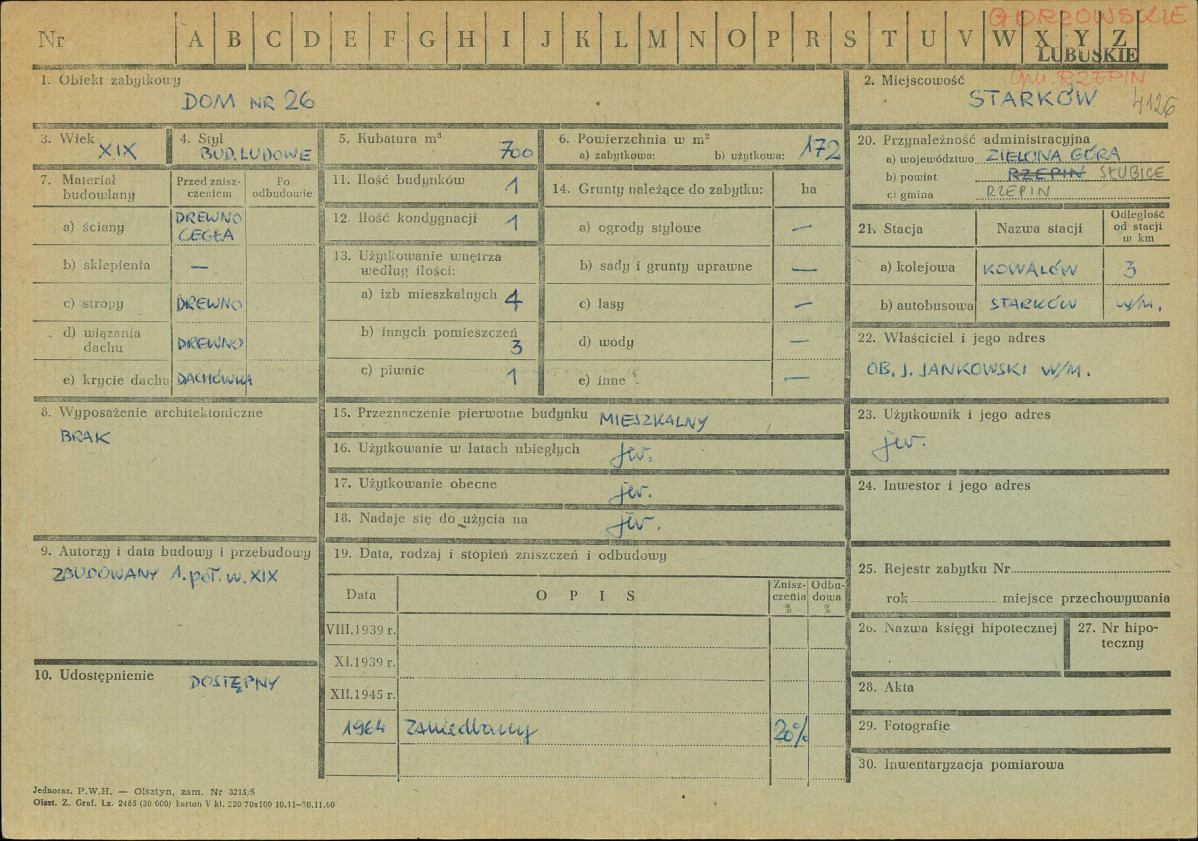 GORZOWSKIE
Nr A B C D E F G H I J K L M N O P R S T U V W X Y Z
LUBUSKIE
1. Obiekt zabytkowy
DOM NR 26
2. Miejscowość
gm. RZEPIN
STARKÓW 4126
3. Wiek
XIX
4. Styl
BUD. LUDOWE
5. Kubatura m³
700
6. Powierzchnia w m²
a) zabytkowa: b) użytkowa: 172
20. Przynależność administracyjna
a) województwo ZIELONA GÓRA
b) powiat RZEPIN SŁUBICE
c) gmina RZEPIN
7. Materiał budowlany
Przed zniszczeniem
Po odbudowie
a) ściany DREWNO
CEGŁA
b) sklepienia —
c) stropy DREWNO
d) wiązania dachu DREWNO
e) krycie dachu DACHÓWKA
11. Ilość budynków 1
12. Ilość kondygnacji 1
13. Użytkowanie wnętrza
według ilości:
a) izb mieszkalnych 4
b) innych pomieszczeń
3
c) piwnic 1
14. Grunty należące do zabytku: ha
a) ogrody stylowe —
b) sady i grunty uprawne —
c) lasy —
d) wody —
e) inne —
21. Stacja Nazwa stacji Odległość
od stacji
w km
a) kolejowa KOWALÓW 3
b) autobusowa STARKÓW w/m.
22. Właściciel i jego adres
OB. J. JANKOWSKI W/M.
8. Wyposażenie architektoniczne
BRAK
15. Przeznaczenie pierwotne budynku MIESZKALNY
16. Użytkowanie w latach ubiegłych jw.
17. Użytkowanie obecne jw.
18. Nadaje się do użycia na jw.
23. Użytkownik i jego adres
jw.
24. Inwestor i jego adres
9. Autorzy i data budowy i przebudowy
ZBUDOWANY 1. poł. w. XIX
19. Data, rodzaj i stopień zniszczeń i odbudowy
Data OPIS Zniszczenia % Odbudowa %
VIII.1939 r.
XI.1939 r.
XII.1945 r.
1964 zaniedbany 20%
25. Rejestr zabytku Nr
rok miejsce przechowywania
26. Nazwa księgi hipotecznej
27. Nr hipoteczny
10. Udostępnienie DOSTĘPNY
28. Akta
29. Fotografie
30. Inwentaryzacja pomiarowa
Jednoraz. P.W.H. — Olsztyn, zam. Nr 3215/S
Olszt. Z. Graf. Lz. 2485 (30 000) karton V kl. 220 70x100 10.11—30.11.60